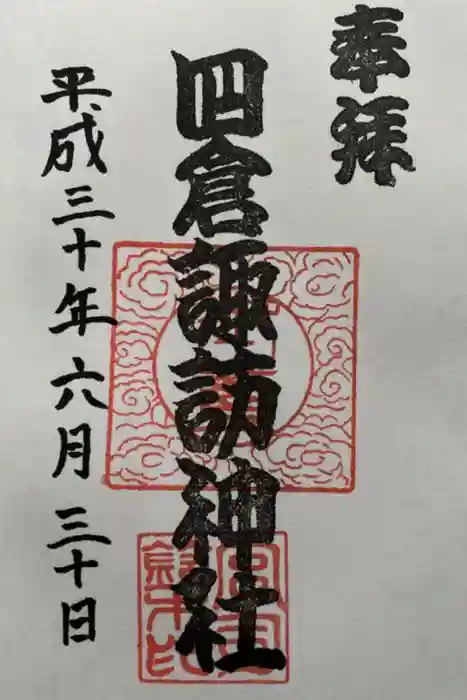 奉拝
四倉諏訪神社
平成三十年六月三十日